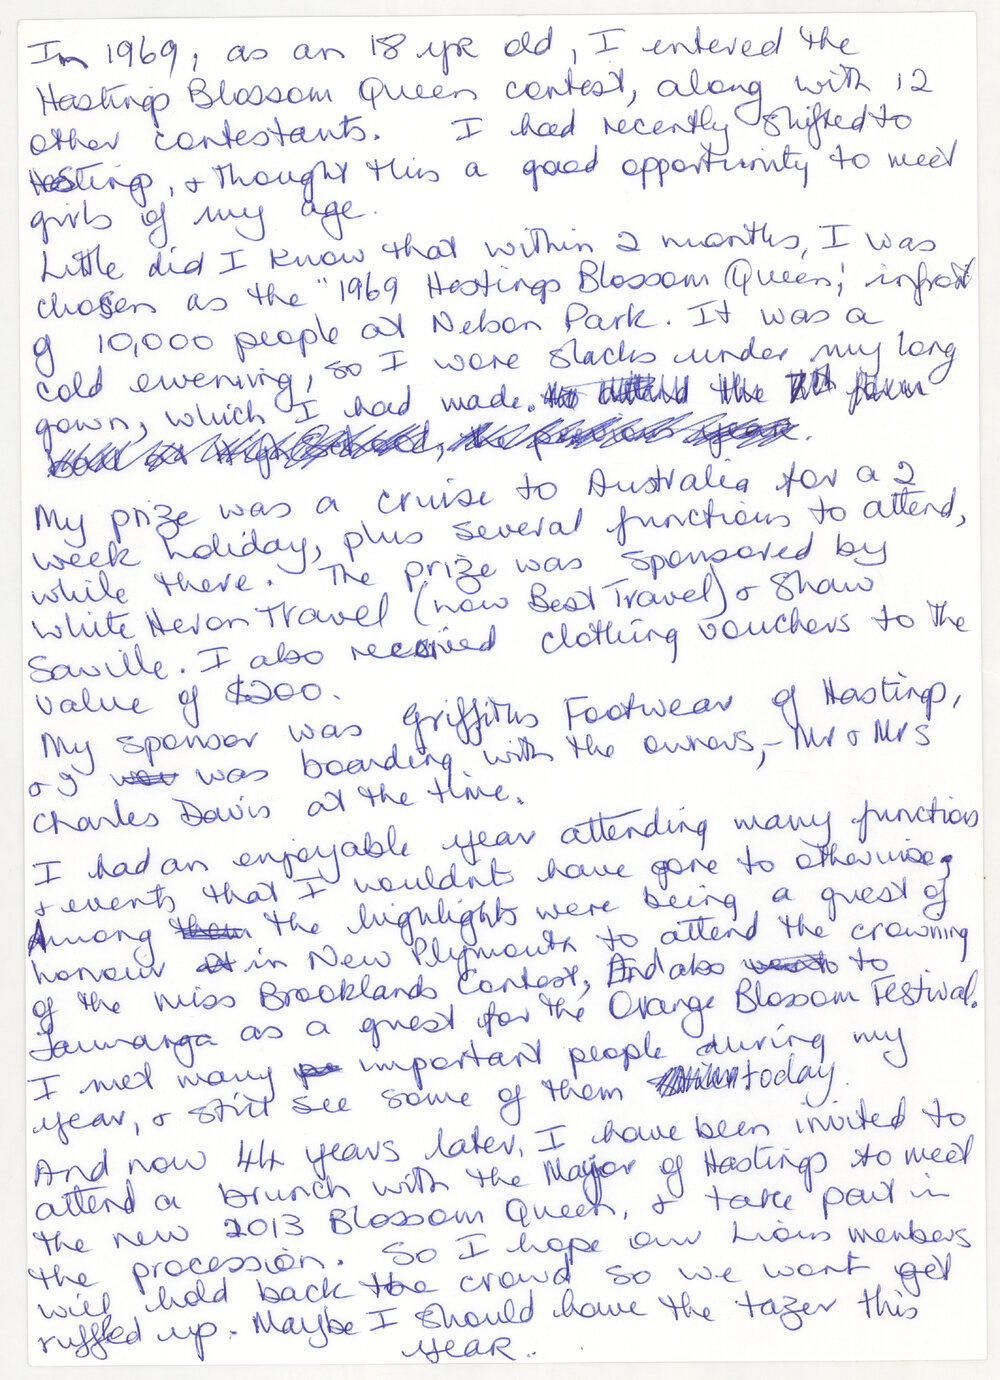 In 1969, as an 18 yr old, I entered the
Hastings Blossom Queen contest, along with 12
other contestants. I had recently shifted to
Hastings, & thought this a good opportunity to meet
girls of my age.
Little did I know that within 2 months, I was
chosen as the "1969 Hastings Blossom Queen", infront
of 10,000 people at Nelson Park. It was a
cold evening, so I wore slacks under my long
gown, which I had made. to attend the 7th form
ball at High School, the previous year.
My prize was a cruise to Australia for a 2
week holiday, plus several functions to attend,
while there. The prize was sponsored by
White Heron Travel (now Best Travel) & Shaw
Saville. I also received clothing vouchers to the
value of $200.
My sponsor was Griffiths Footwear of Hastings,
& I was boarding with the owners, - Mr & Mrs
Charles Davis at the time.
I had an enjoyable year attending many functions
& events that I wouldn't have gone to otherwise,
Among them the highlights were being a guest of
honour at in New Plymouth to attend the crowning
of the Miss Brooklands Contest, And also went to
Tauranga as a guest for the Orange Blossom Festival.
I met many important people during my
year, & still see some of them today.
And now 44 years later, I have been invited to
attend a brunch with the Mayor of Hastings to meet
the new 2013 Blossom Queen, & take part in
the procession. So I hope our Lions members
will hold back the crowd so we wont get
ruffled up. Maybe I should have the tazer this
year..